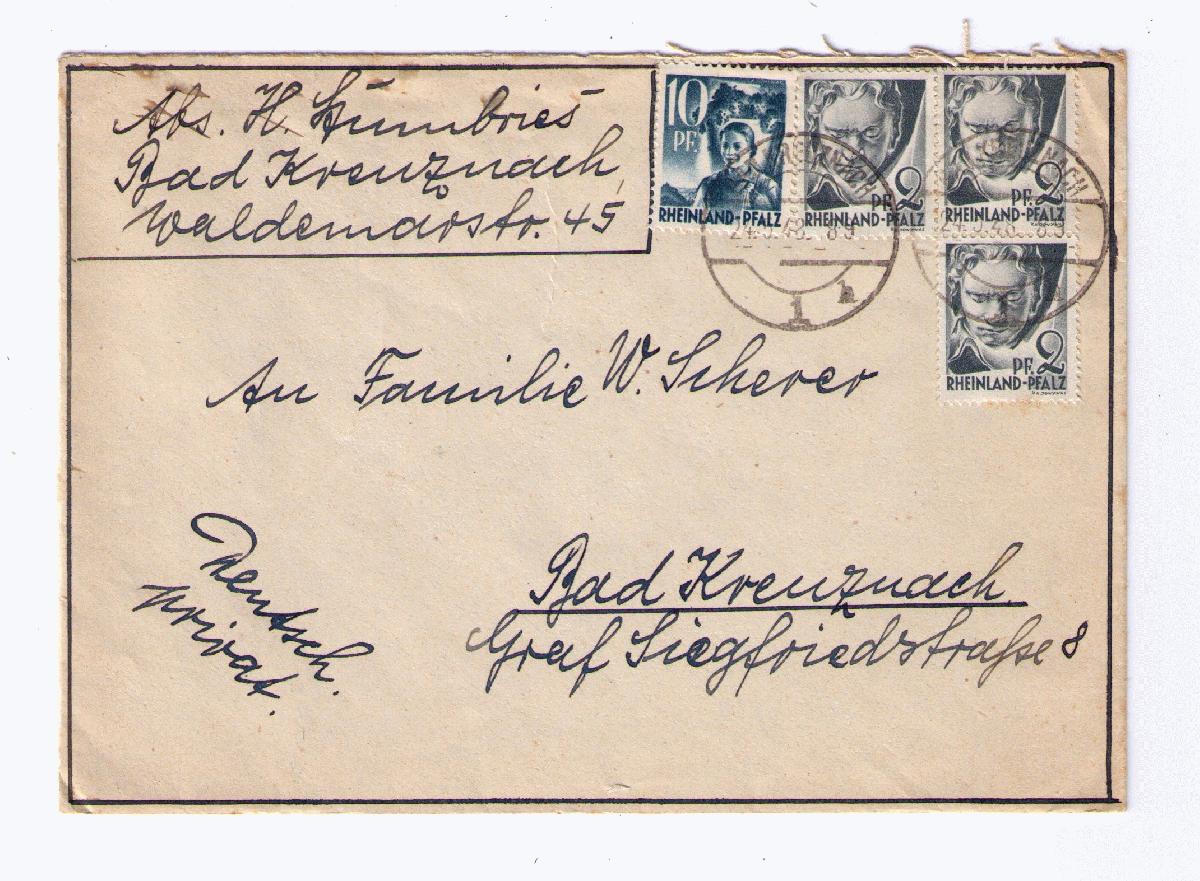 Abs. H. Stumbries
Bad Kreuznach,
Waldemarstr. 45
10
PF.
RHEINLAND-PFALZ
PF. 2
RHEINLAND-PFALZ
PF. 2
RHEINLAND-PFALZ
PF. 2
RHEINLAND-PFALZ
An Familie W. Scherer
Deutsch.
privat.
Bad Kreuznach
Graf Siegfriedstraße 8